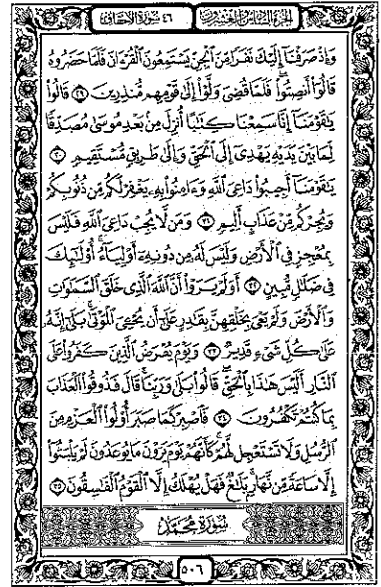 الجزء السادس والعشرون ٤٦ سورة الأحقاف
وَإِذْ صَرَفْنَا إِلَيْكَ نَفَرًا مِّنَ الْجِنِّ يَسْتَمِعُونَ الْقُرْءَانَ فَلَمَّا حَضَرُوهُ
قَالُوا أَنصِتُوا فَلَمَّا قُضِىَ وَلَّوْا إِلَىٰ قَوْمِهِم مُّنذِرِينَ ٢٩ قَالُوا
يَٰقَوْمَنَا إِنَّا سَمِعْنَا كِتَٰبًا أُنزِلَ مِنۢ بَعْدِ مُوسَىٰ مُصَدِّقًا
لِّمَا بَيْنَ يَدَيْهِ يَهْدِى إِلَى الْحَقِّ وَإِلَىٰ طَرِيقٍ مُّسْتَقِيمٍ ٣٠
يَٰقَوْمَنَا أَجِيبُوا دَاعِىَ اللَّهِ وَءَامِنُوا بِهِ يَغْفِرْ لَكُم مِّن ذُنُوبِكُمْ
وَيُجِرْكُم مِّنْ عَذَابٍ أَلِيمٍ ٣١ وَمَن لَّا يُجِبْ دَاعِىَ اللَّهِ فَلَيْسَ
بِمُعْجِزٍ فِى الْأَرْضِ وَلَيْسَ لَهُ مِن دُونِهِ أَوْلِيَاءُ أُولَٰئِكَ
فِى ضَلَٰلٍ مُّبِينٍ ٣٢ أَوَلَمْ يَرَوْا أَنَّ اللَّهَ الَّذِى خَلَقَ السَّمَٰوَٰتِ
وَالْأَرْضَ وَلَمْ يَعْىَ بِخَلْقِهِنَّ بِقَٰدِرٍ عَلَىٰ أَن يُحْـِۧىَ الْمَوْتَىٰ بَلَىٰ إِنَّهُ
عَلَىٰ كُلِّ شَىْءٍ قَدِيرٌ ٣٣ وَيَوْمَ يُعْرَضُ الَّذِينَ كَفَرُوا عَلَى
النَّارِ أَلَيْسَ هَٰذَا بِالْحَقِّ قَالُوا بَلَىٰ وَرَبِّنَا قَالَ فَذُوقُوا الْعَذَابَ
بِمَا كُنتُمْ تَكْفُرُونَ ٣٤ فَاصْبِرْ كَمَا صَبَرَ أُولُوا الْعَزْمِ مِنَ
الرُّسُلِ وَلَا تَسْتَعْجِل لَّهُمْ كَأَنَّهُمْ يَوْمَ يَرَوْنَ مَا يُوعَدُونَ لَمْ يَلْبَثُوا
إِلَّا سَاعَةً مِّن نَّهَارٍ بَلَٰغٌ فَهَلْ يُهْلَكُ إِلَّا الْقَوْمُ الْفَٰسِقُونَ ٣٥
سُورَةُ مُحَمَّدٍ
٥٠٦